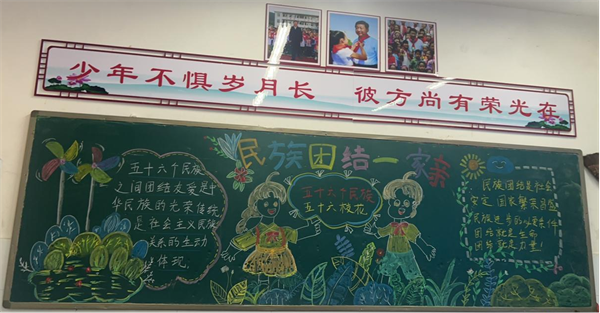 少年不惧岁月长 彼方尚有荣光在
民族团结一家亲
五十六个民族
之间团结友爱是中
华民族的光荣传统
是社会主义民族
关系的生动
体现.
五十六个民族
五十六枝花
民族团结是社会
安定、国家繁荣昌盛
民族进步的必要条件
团结就是生命
团结就是力量!